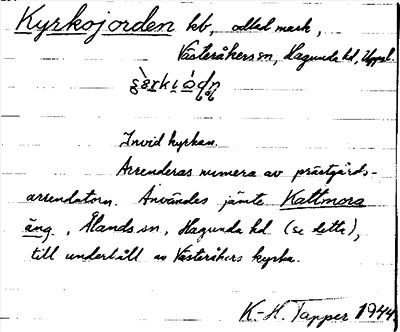 Kyrkojorden kb, odlad mark,
Västeråkers sn, Hagunda hd, Uppsl.
Invid kyrkan.
Arrenderas numera av prästgårds-
arrendatorn. Användes jämte Kattmora
äng, Ålands sn, Hagunda hd (se detta),
till underhåll av Västeråkers kyrka.
K.-H. Tapper 1944.